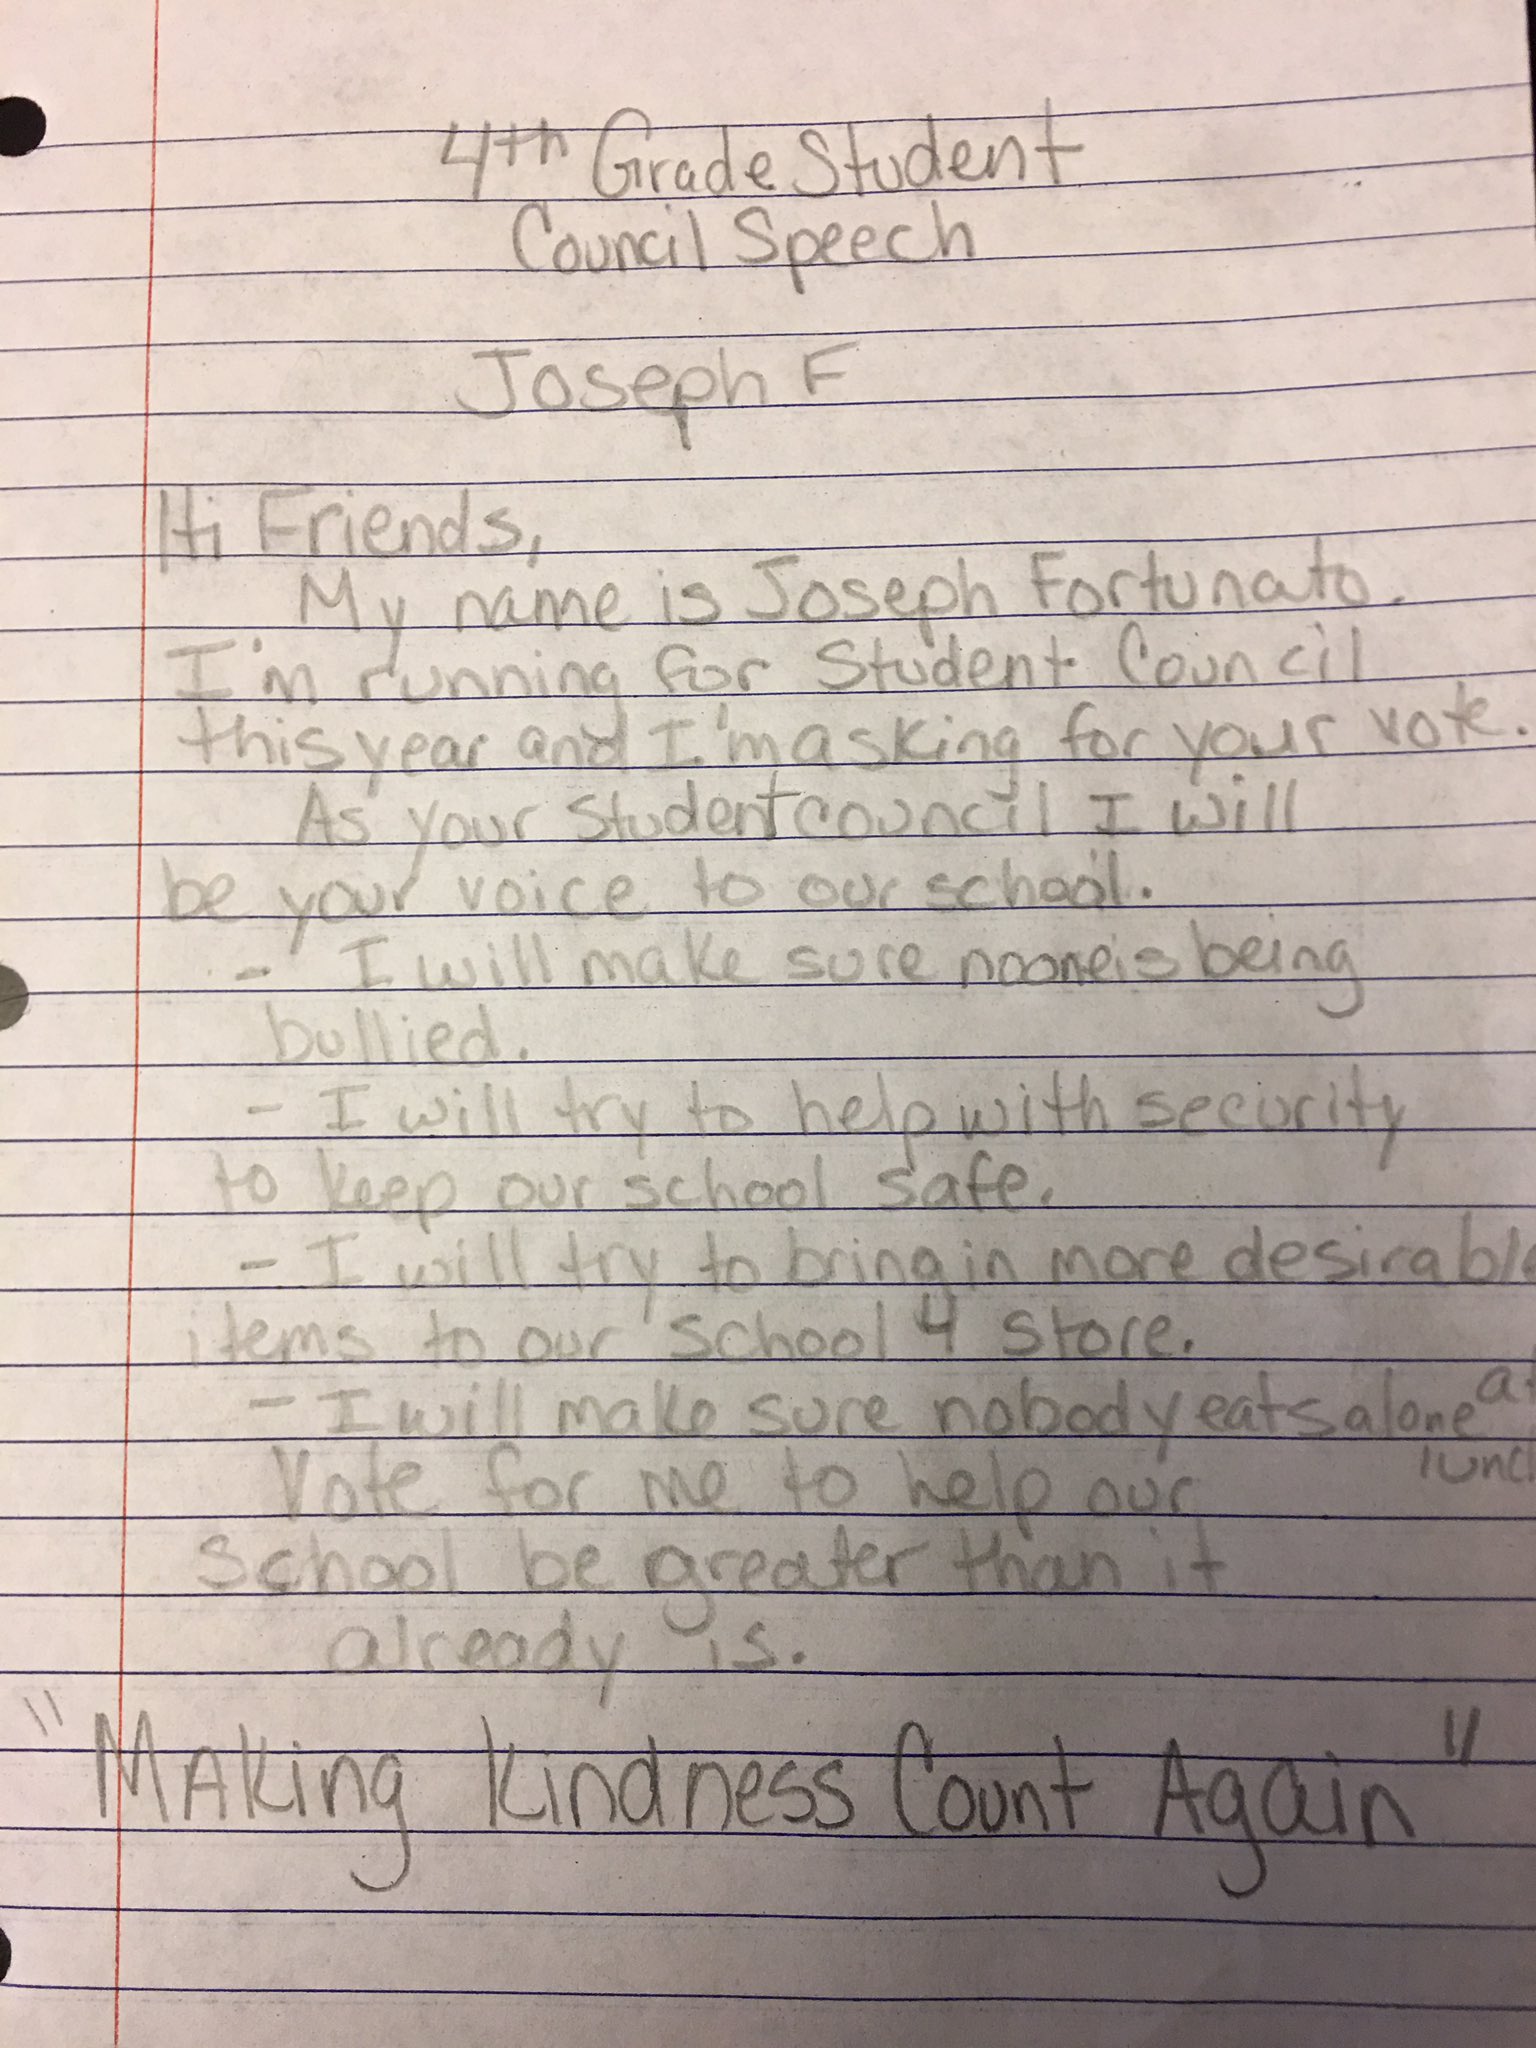 4th Grade Student
Council Speech
Joseph F
Hi Friends,
My name is Joseph Fortunato.
I'm running for Student Council
this year and I'm asking for your vote.
As your Student council I will
be your voice to our school.
- I will make sure no one is being
bullied.
- I will try to help with security
to keep our school safe.
- I will try to bring in more desirable
items to our school 4 store.
- I will make sure nobody eats alone at
lunch
Vote for me to help our
school be greater than it
already is.
"Making Kindness Count Again"